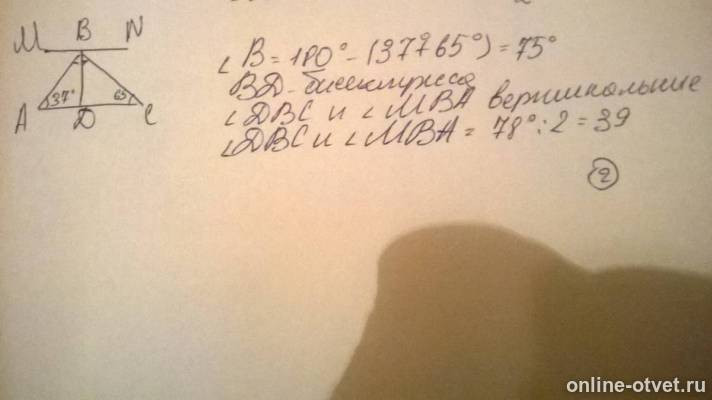 M B N
37° 65°
A D C
∠B = 180° - (37°+65°) = 75°
BD - биссектриса
∠DBC и ∠MBA вертикальные
∠DBC и ∠MBA = 78° : 2 = 39
2
online-otvet.ru